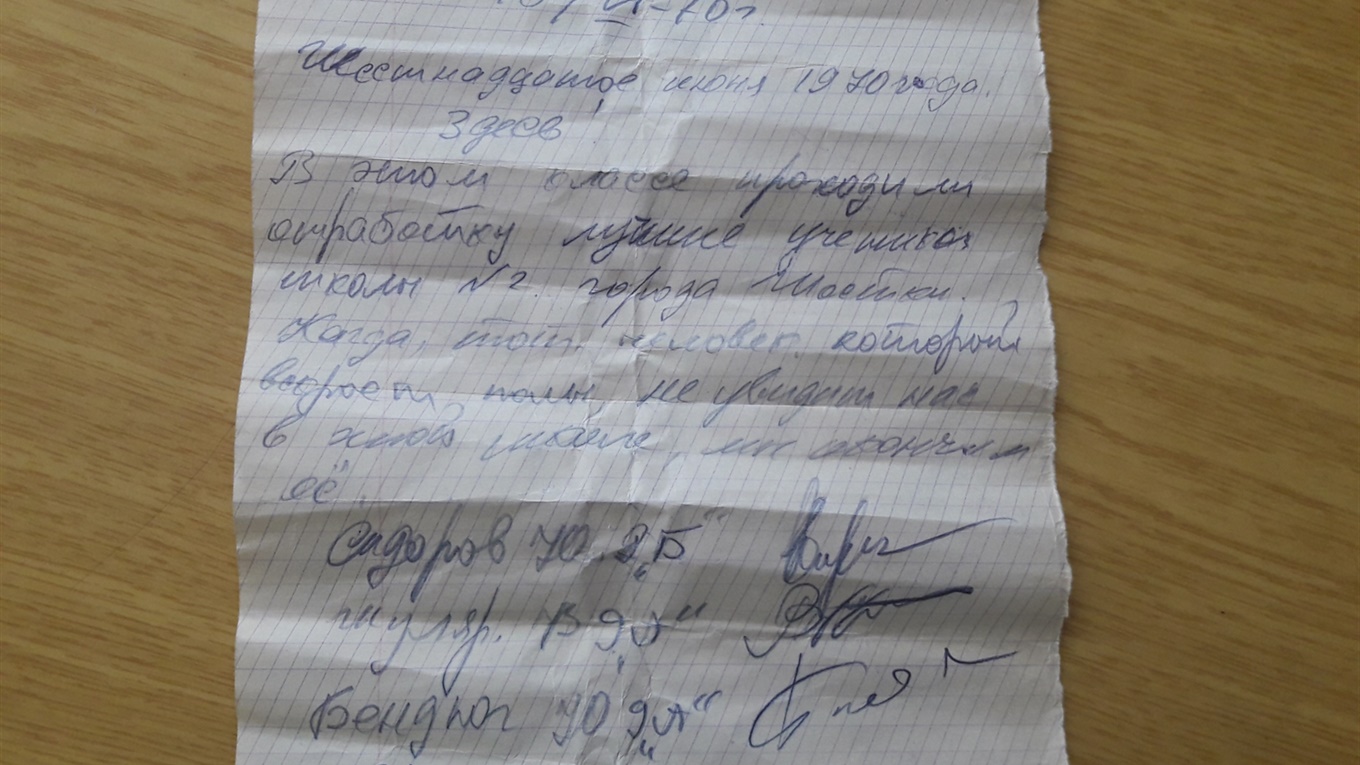 16/VI-70г.
Шестнадцатое июня 1970 года.
Здесь
В этом классе проходили
отработку лучшие ученики
школы №2. города Шостки.
Когда, тот, человек, который
вскроет полы, не увидит нас
в этой школе, мы окончим
её.
Сидоров Ю. 9„Б“
Жуляр. В 9„А“
Бендюг Ю 9„А“